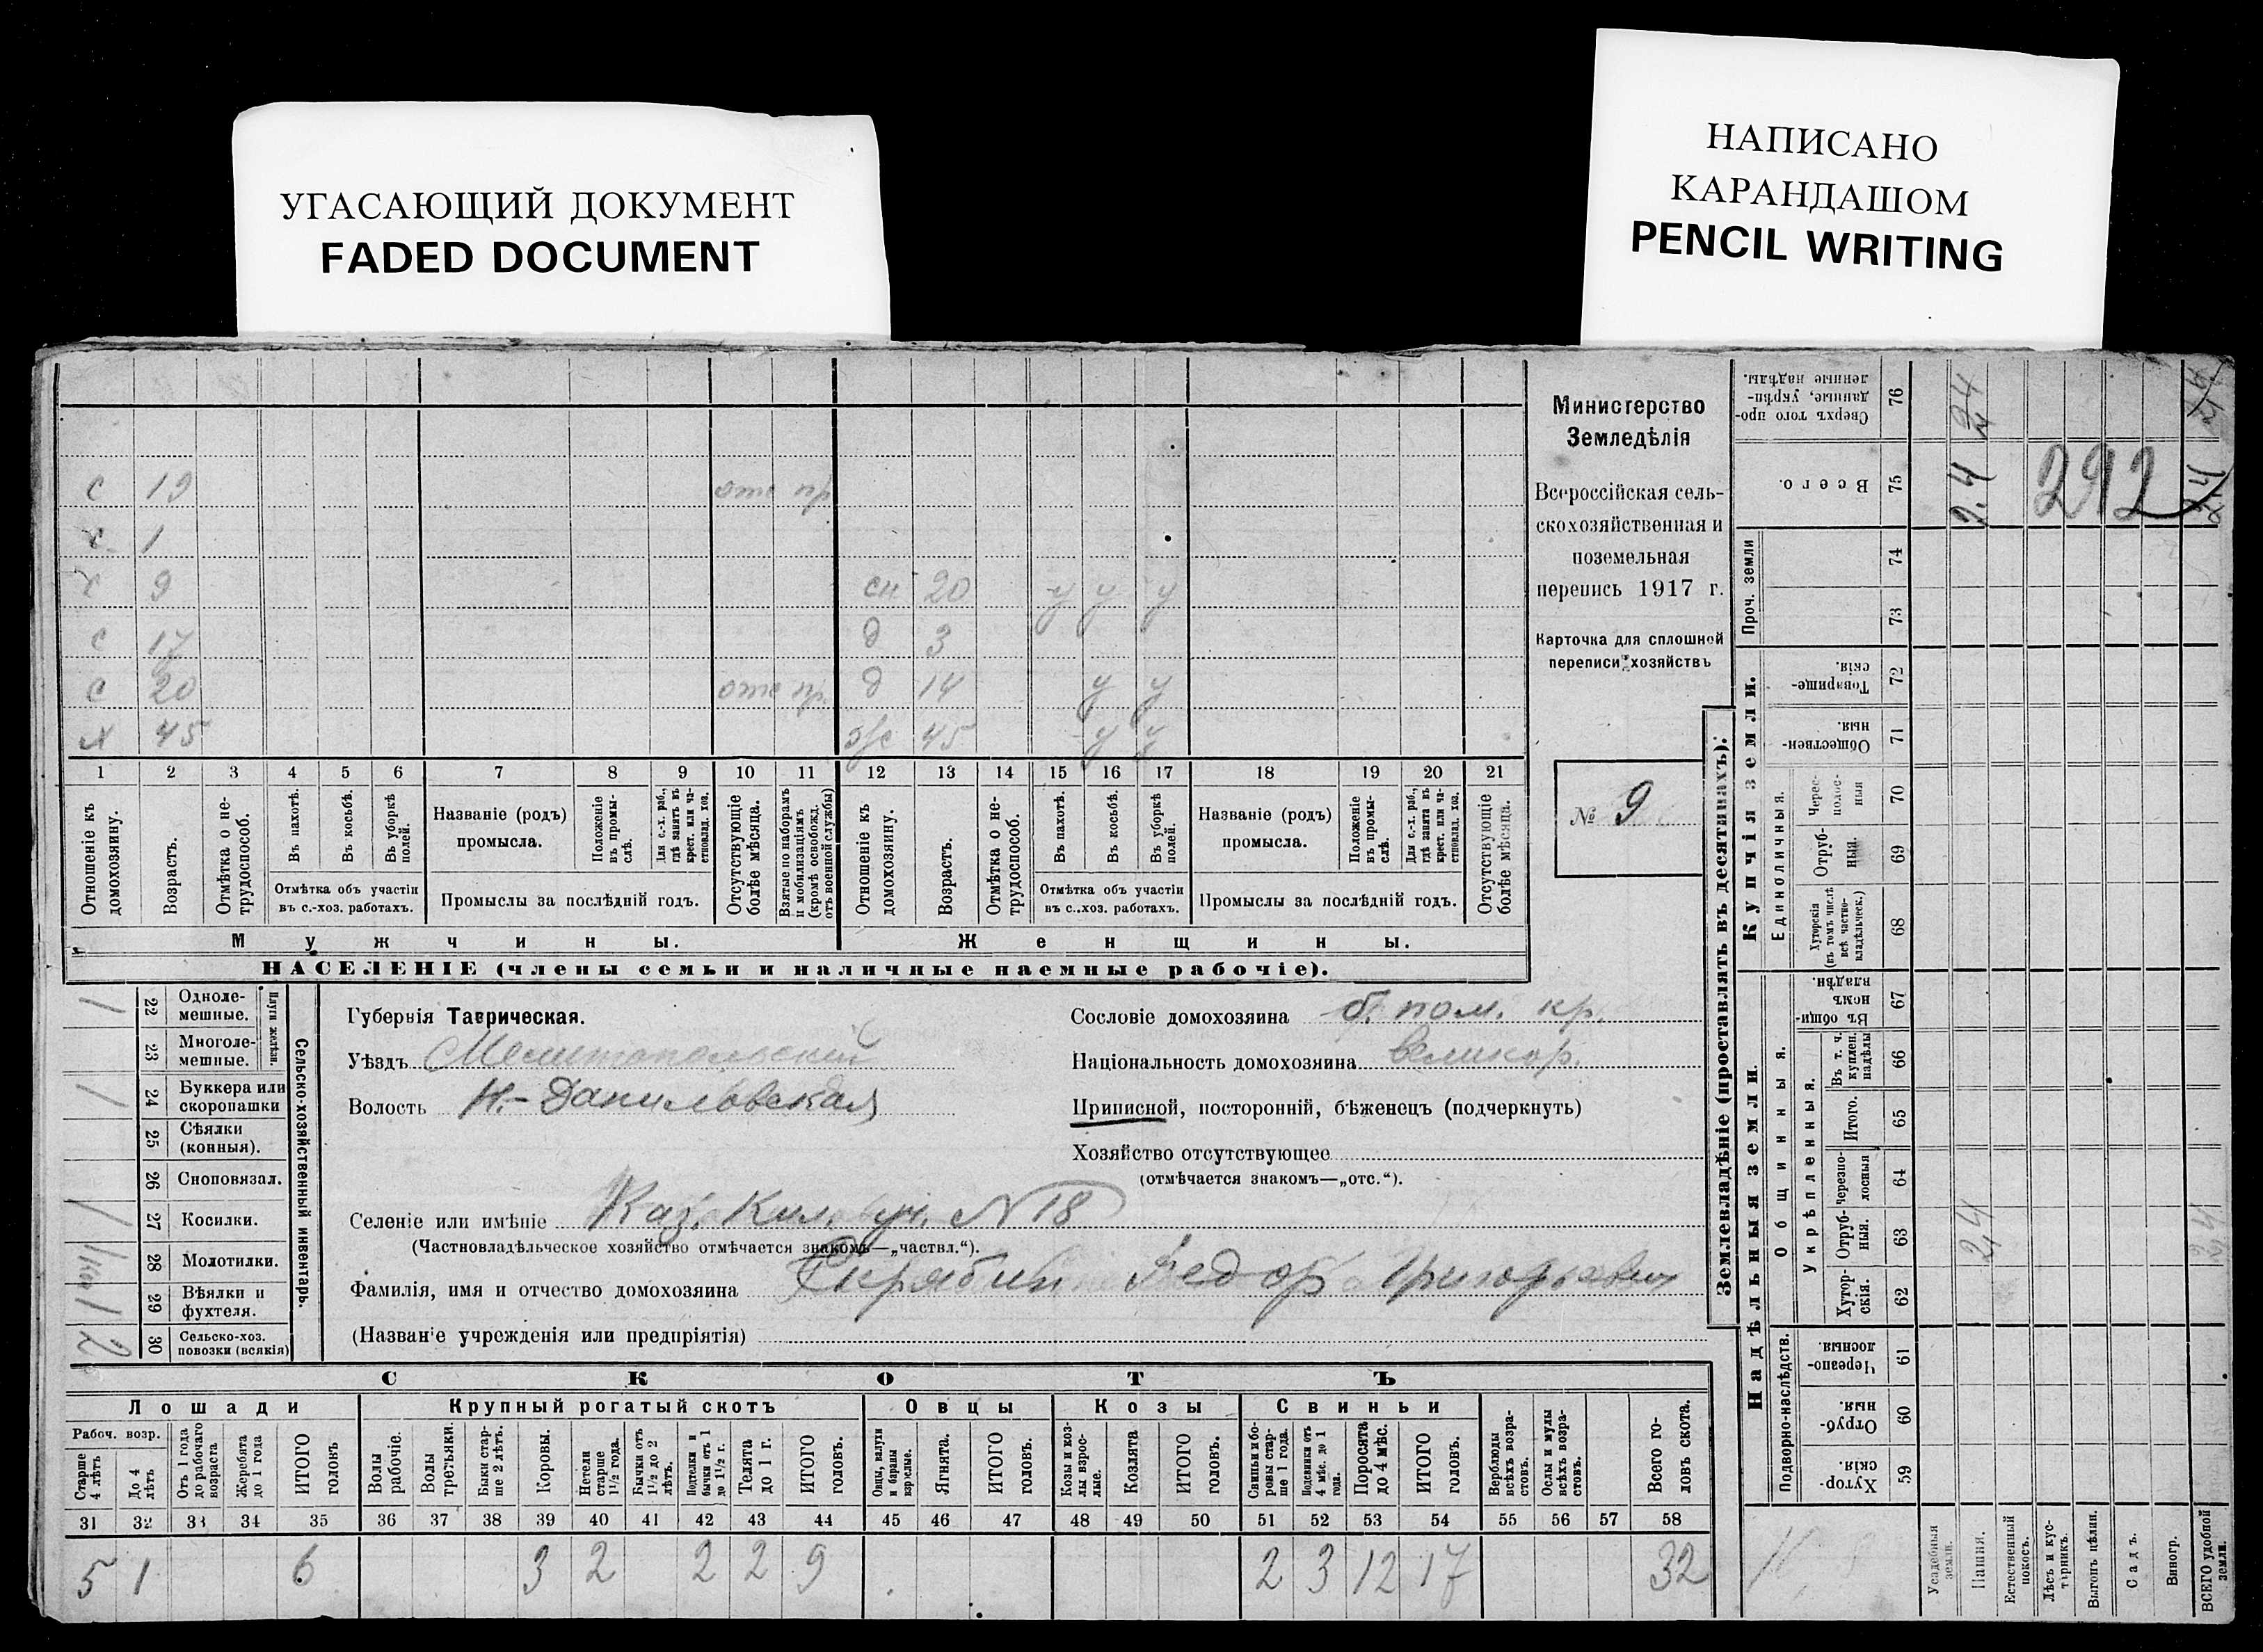 УГАСАЮЩИЙ ДОКУМЕНТ
FADED DOCUMENT
НАПИСАНО
КАРАНДАШОМ
PENCIL WRITING
с 19 отс пр
с 1
с 9 сн 20 у у у
с 17 д 3
с 20 отс пр. д 14 у у
х 45 ж 45 у у
1 2 3 4 5 6 7 8 9 10 11 12 13 14 15 16 17 18 19 20 21
Отношеніе къ домохозяину.
Возрастъ.
Отмѣтка о не-трудоспособ.
Въ пахотѣ.
Въ косьбѣ.
Въ уборкѣ полей.
Отмѣтка объ участіи
въ с.-хоз. работахъ.
Названіе (родъ)
промысла.
Положеніе въ промы-слѣ.
Для с.-х. раб., гдѣ занятъ въ крест. или ча-стновлад. хоз.
Промыслы за послѣдній годъ.
Отсутствующіе болѣе мѣсяца.
Взятые по наборамъ и мобилизаціямъ (кромѣ освобожд. отъ военной службы)
Отношеніе къ домохозяину.
Возрастъ.
Отмѣтка о не-трудоспособ.
Въ пахотѣ.
Въ косьбѣ.
Въ уборкѣ полей.
Отмѣтка объ участіи
въ с..хоз. работахъ.
Названіе (родъ)
промысла.
Положеніе въ промы-слѣ.
Для с.-х. раб., гдѣ занята въ крест. или ча-стновлад. хоз.
Промыслы за послѣдній годъ.
Отсутствующіе болѣе мѣсяца.
Мужчины. Женщины.
НАСЕЛЕНІЕ (члены семьи и наличные наемные рабочіе).
Министерство
Земледѣлія
Всероссійская сель-
скохозяйственная и
поземельная
перепись 1917 г.
Карточка для сплошной
переписи хозяйствъ
№ 9
Сельско-хозяйственный инвентарь.
Плуги желѣзн.
22 Одноле-мешные. 1
23 Многоле-мешные.
24 Буккера или скоропашки 1
25 Сѣялки (конныя).
26 Сноповязал.
27 Косилки. 1
28 Молотилки.
29 Вѣялки и фухтеля. 1
30 Сельско-хоз. повозки (всякія) 2
Губернія Таврическая.
Уѣздъ Мелитопольскій
Волость Н.-Даниловская
Селеніе или имѣніе Каз. Кил. уч. N 18
(Частновладѣльческое хозяйство отмѣчается знакомъ—„частвл.“).
Фамилія, имя и отчество домохозяина Скрябин Федор Григорьевич
(Названіе учрежденія или предпріятія)
Сословіе домохозяина б. пом. кр.
Національность домохозяина великор.
Приписной, посторонній, бѣженецъ (подчеркнуть)
Хозяйство отсутствующее
(отмѣчается знакомъ—„отс.“).
СКОТЪ
Лошади Крупный рогатый скотъ Овцы Козы Свиньи
Рабоч. возр.
Старше 4 лѣтъ
До 4 лѣтъ
Отъ 1 года до рабочаго возраста
Жеребята до 1 года
ИТОГО головъ
Волы рабочіе.
Волы третьяки.
Быки стар-ше 2 лѣтъ.
Коровы.
Нетели старше 1½ года.
Бычки отъ 1½ до 2 лѣтъ.
Подтелки и бычки отъ 1 до 1½ г.
Телята до 1 г.
ИТОГО головъ.
Овцы, валухи и бараны взрослые.
Ягнята.
ИТОГО головъ.
Козы и коз-лы взрос-лые.
Козлята
ИТОГО головъ.
Свиньи и бо-ровы стар-ше 1 года.
Подсвинки отъ 4 мѣс. до 1 года.
Поросята до 4 мѣс.
ИТОГО головъ.
Верблюды всѣхъ возра-стовъ.
Ослы и мулы всѣхъ возра-стовъ.
Всего го-ловъ скота.
31 32 33 34 35 36 37 38 39 40 41 42 43 44 45 46 47 48 49 50 51 52 53 54 55 56 57 58
5 1 6 3 2 2 2 9 2 3 12 17 32
Землевладѣніе (проставлять въ десятинахъ):
Надѣльныя земли.
Купчія земли.
Проч. земли
Подворно-наслѣдств.
Общинныя.
Укрѣпленныя.
Единоличныя.
Сверхъ того про-данные, укрѣп-ленные надѣлы. 76 24
Всего. 75 24 24
292
74
73
Товарище-скія. 72
Обществен-ныя. 71
Черес-полос-ныя 70
Отруб-ныя. 69
Хуторскія (въ томъ числѣ всѣ частно-владѣльческ.) 68
Въ общи-номъ владѣн. 67
Въ т. ч. куплен. надѣлы 66
Итого. 65
Черезпо-лосныя 64
Отруб-ныя. 63 24 24
Хутор-скія. 62
Черезпо-лосныя 61
Отруб-ныя. 60
Хутор-скія. 59
Усадебная земля.
Пашня.
Естественный покосъ.
Лѣсъ и кус-тарникъ.
Выгонъ цѣлин.
Садъ.
Виногр.
ВСЕГО удобной земли.